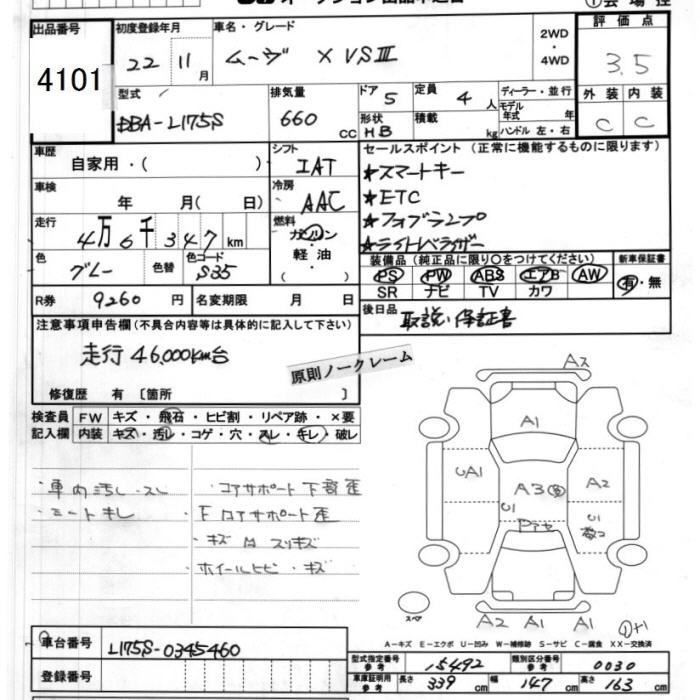 出品番号
4101
初度登録年月
22年 11月
車名・グレード
ムーヴ X VSⅢ
2WD
・
4WD
評価点
3.5
外装 内装
C C
型式
DBA-L175S
排気量
660 CC
ドア 5
形状 HB
定員 4人
積載 kg
ディーラー・並行
モデル年式 年
ハンドル 左・右
車歴
自家用・( )
シフト
IAT
車検
年 月( 日)
冷房
AAC
走行
4万6千347km
燃料
ガソリン
軽油
( ・ )
色
グレー
色替
色コード
S35
R券 9260円
名変期限 月 日
セールスポイント (正常に機能するものに限ります)
★スマートキー
★ETC
★フォグランプ
★ライトレベライザー
装備品 (純正品に限り○をつけてください)
PS PW ABS エアB AW
SR ナビ TV カワ
新車保証書
有・無
後日品
取説、保証書
注意事項申告欄(不具合内容等は具体的に記入して下さい)
走行 46,000km台
修復歴 有 〔箇所 〕
原則ノークレーム
検査員記入欄
FW キズ・飛石・ヒビ割・リペア跡・×要
内装 キズ・汚レ・コゲ・穴・スレ・キレ・破レ
・車内汚し・スレ
・シートキレ
・コアサポート下部歪
・Fロアサポート歪
・ホイールヒビ・キズ
A1
UA1
A3
A2
U1
U1
スペア
A2 A1 A1
A-キズ E-エクボ U-凹み W-補修跡 S-サビ C-腐食 XX-交換済
車台番号 L175S-0345460
登録番号
型式指定番号 参考 15492
類別区分番号 参考 0030
車庫証明用 参考 長さ 339cm 幅 147cm 高さ 163cm